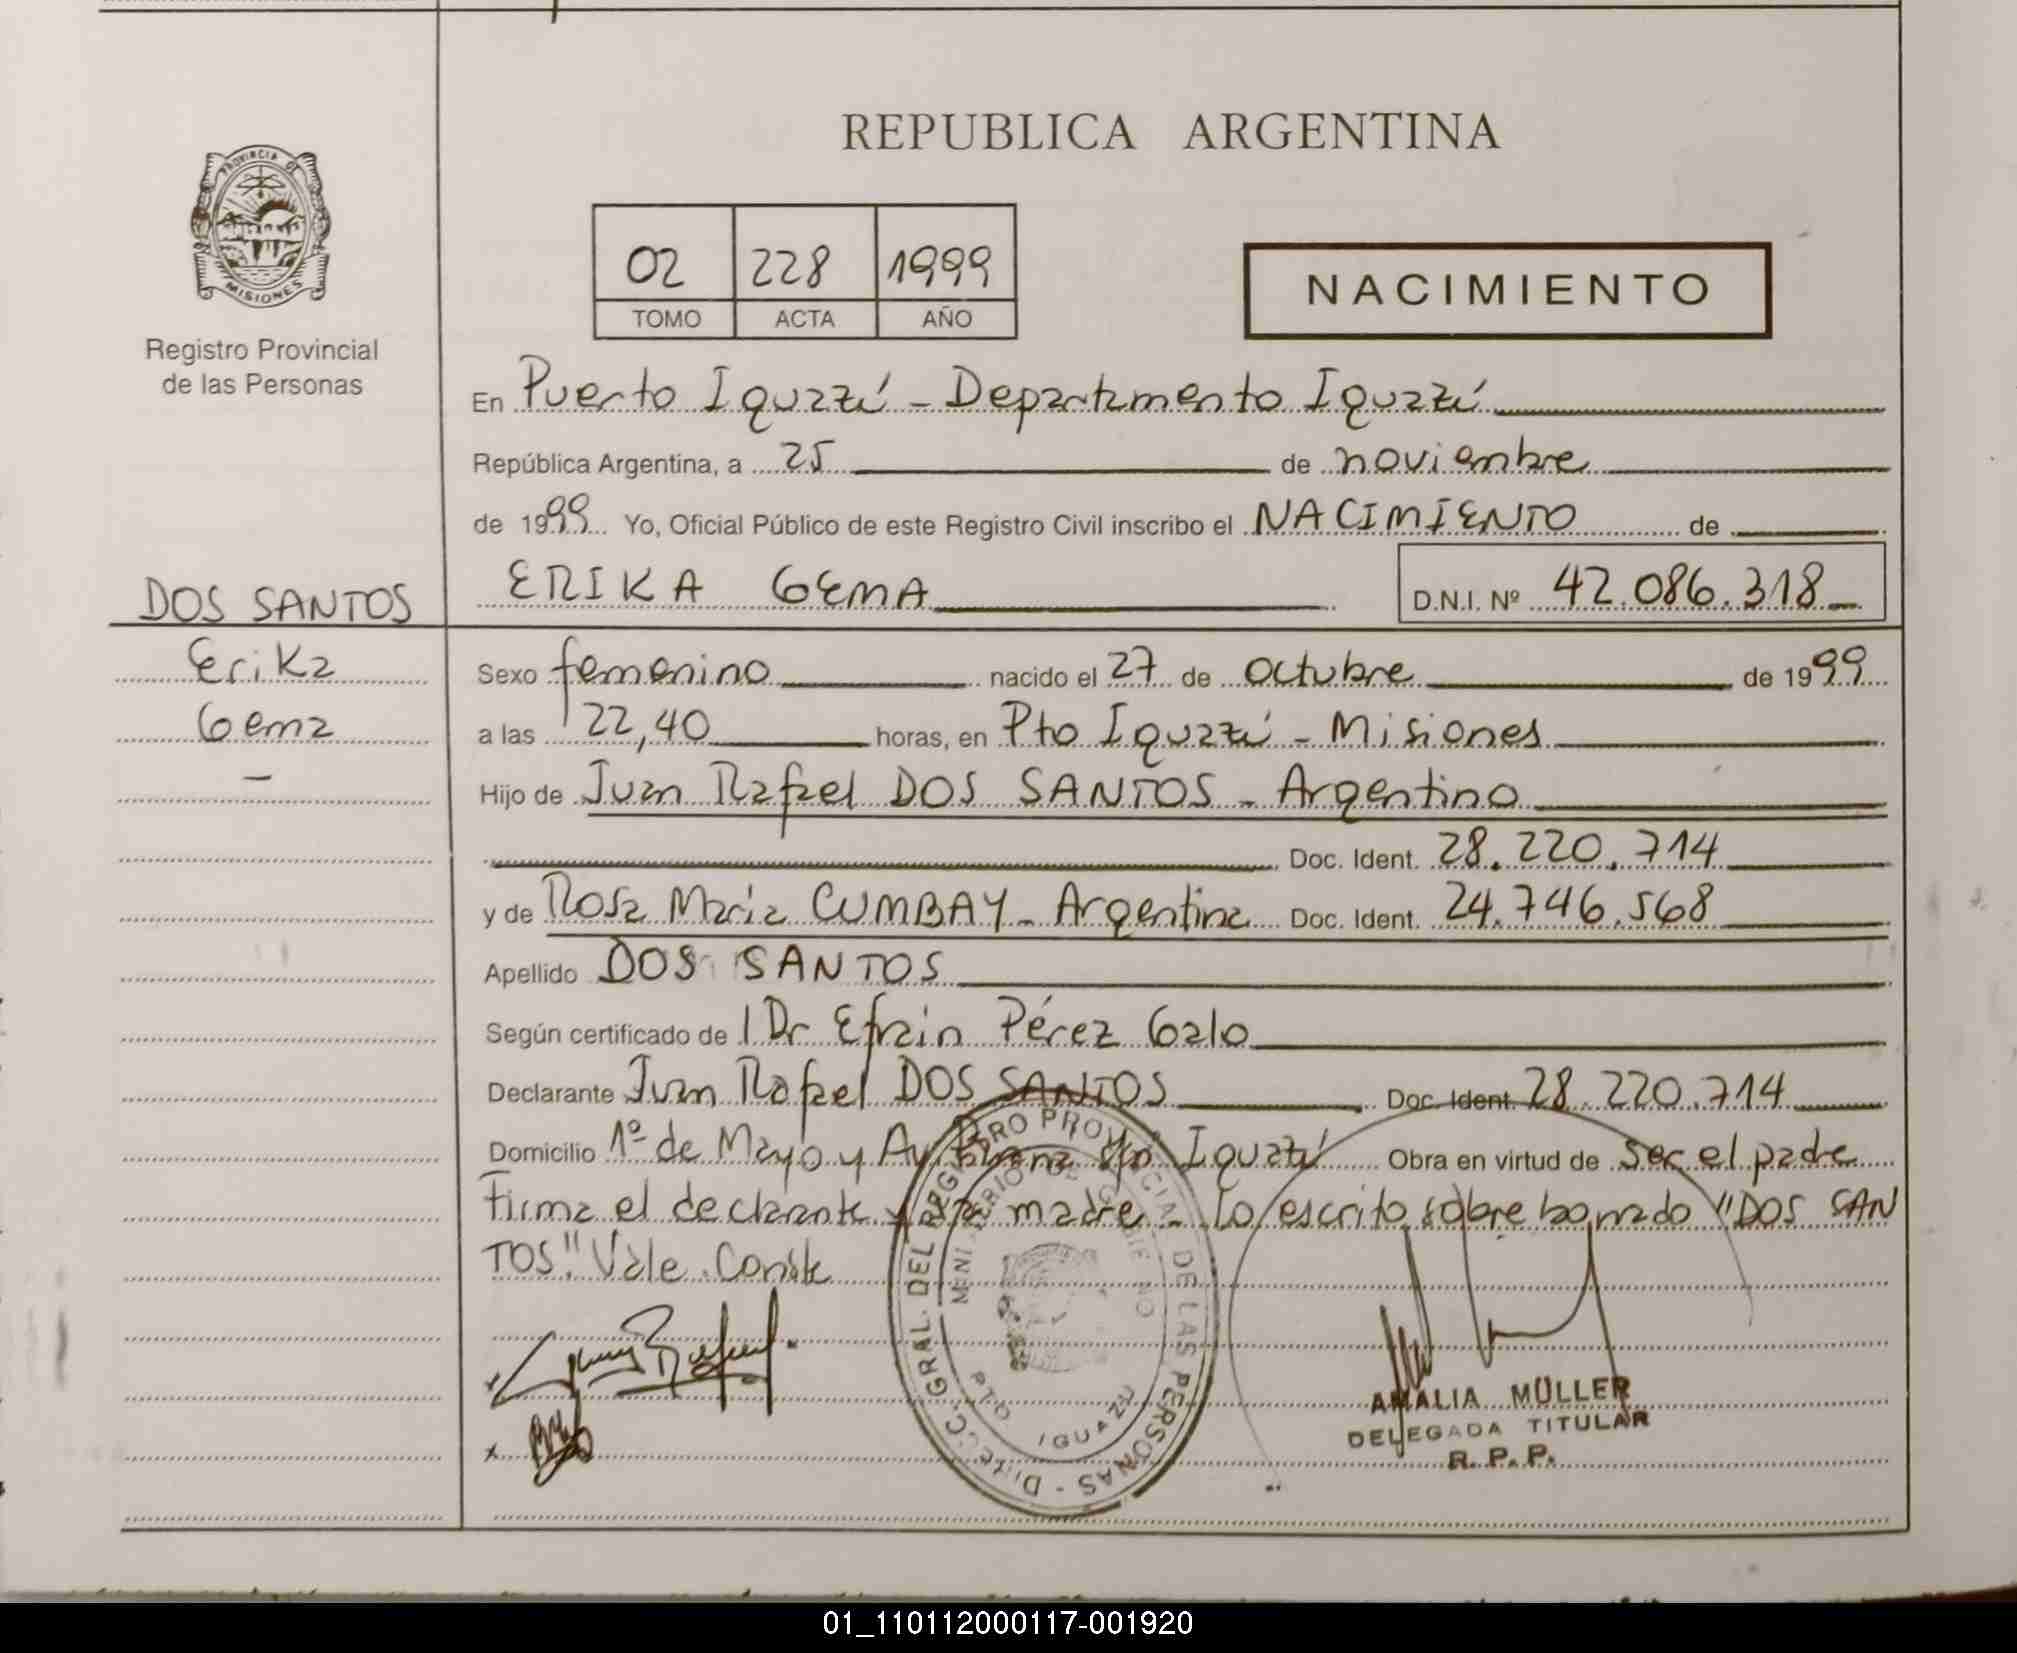 REPUBLICA ARGENTINA
PROVINCIA DE
MISIONES
Registro Provincial
de las Personas
02 228 1999
TOMO ACTA AÑO
NACIMIENTO
En Puerto Iguazú - Departamento Iguazú
República Argentina, a 25 de noviembre
de 1999 Yo, Oficial Público de este Registro Civil inscribo el NACIMIENTO de
ERIKA GEMA D.N.I. Nº 42.086.318
DOS SANTOS
Erika
Gema
Sexo femenino nacido el 27 de octubre de 1999
a las 22,40 horas, en Pto Iguazú - Misiones
Hijo de Juan Rafael DOS SANTOS - Argentino
Doc. Ident. 28.220.714
y de Rosa María CUMBAY - Argentina Doc. Ident. 24.746.568
Apellido DOS SANTOS
Según certificado de Dr Efrain Pérez Galo
Declarante Juan Rafael DOS SANTOS Doc. Ident. 28.220.714
Domicilio 1º de Mayo y Av Iguazú Obra en virtud de ser el padre
Firma el declarante y la madre - Lo escrito sobre borrado "DOS SAN
TOS" Vale. Conste
DEL REGISTRO PROVINCIAL DE LAS PERSONAS
MINISTERIO DE GOBIERNO
PTO IGUAZU
AMALIA MÜLLER
DELEGADA TITULAR
R. P. P.
01_110112000117-001920